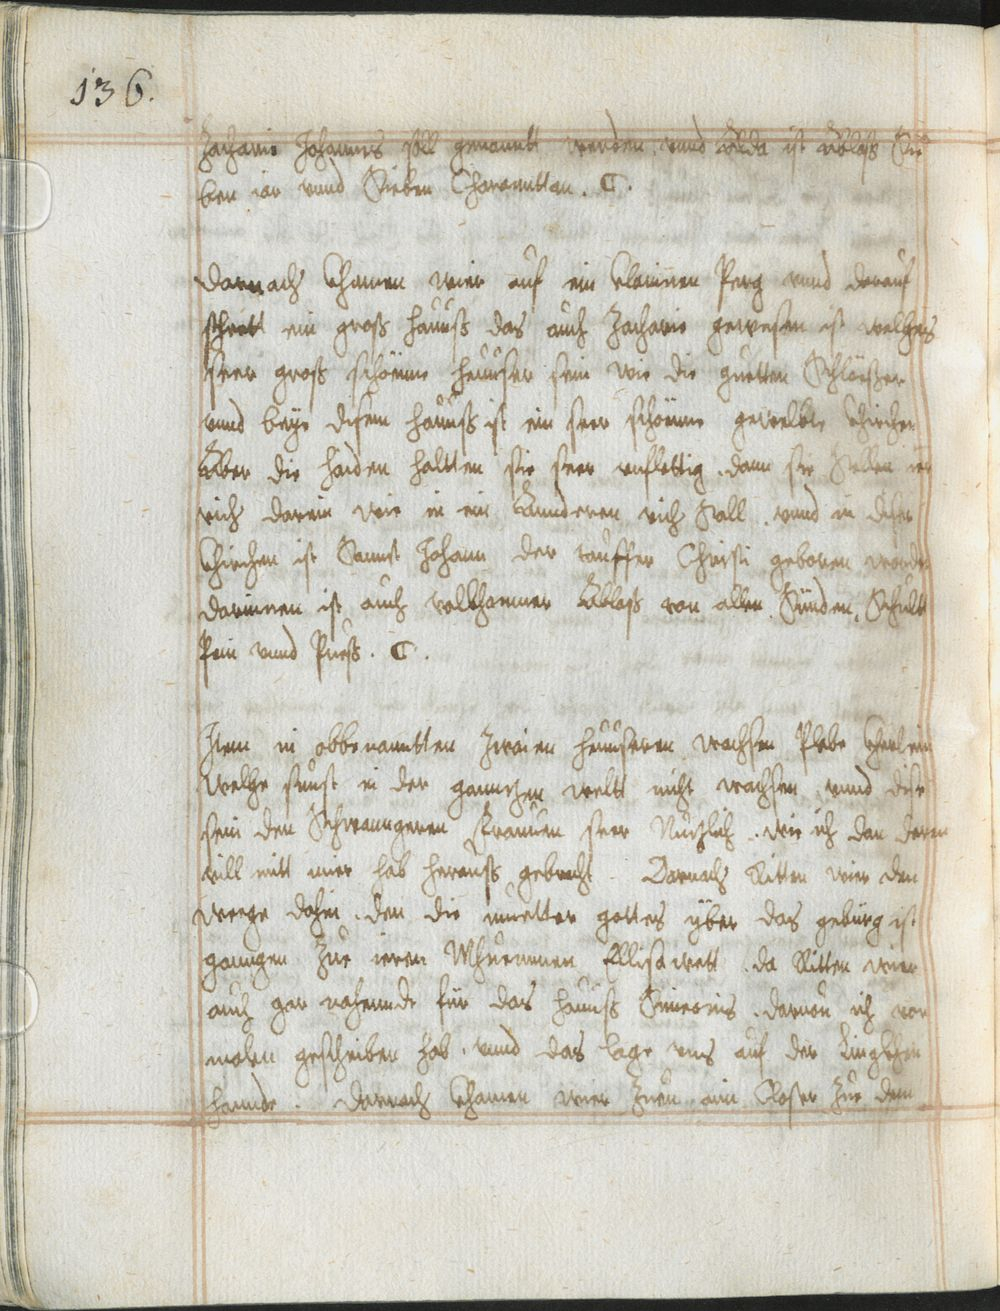 136.
Zacharie Johannes soll genanntt werden, vnnd Alda ist Ablaß Sie
ben iar vnnd Sieben Charanntten. C.
Darnach Chamen wier auf ein Clainnen Perg vnnd darauf
stehett ein groß Hauß das auch Zacharie gewesen ist welches
seer groß schönne heuser sein wie die guetten Schlösser
vnnd beÿe disem Hauß ist ein seer schönne gewelbte Chirchen
Aber die Haiden haltten sie seer vnflettig. dann sie Stellen ier
vich darein wie in ein Annderen vich Stall. vnnd in diser
Chirchen ist Sannst Johann der tauffer Christi geboren worden
darinnen ist auch volkhomner Ablaß von allen Sünden, Schult
Pein vnnd Pueß. C.
Item in obbenanntten Zwaien heuseren wachsen Plabe Cherlein
welhe sunst in der ganntzen welt nicht wachsen vnnd dise
sein den Schwanngeren Frauen seer Nutzlich. wie ich dan deren
vill mitt mier hab herauß gebracht. Darnach Ritten wier den
weege dahin. den die muetter gottes yber das gebürg ist
ganngen Zue ieren Mhuemmen Ellisawett. da Ritten wier
auch gar nahennde für das Hauß Simeonis. darvon ich vor
malen geschriben hab. vnnd das lage vns auf der Lingkhen
hannde. Darnach Chamen wier Zuen aim Closter Zue dem